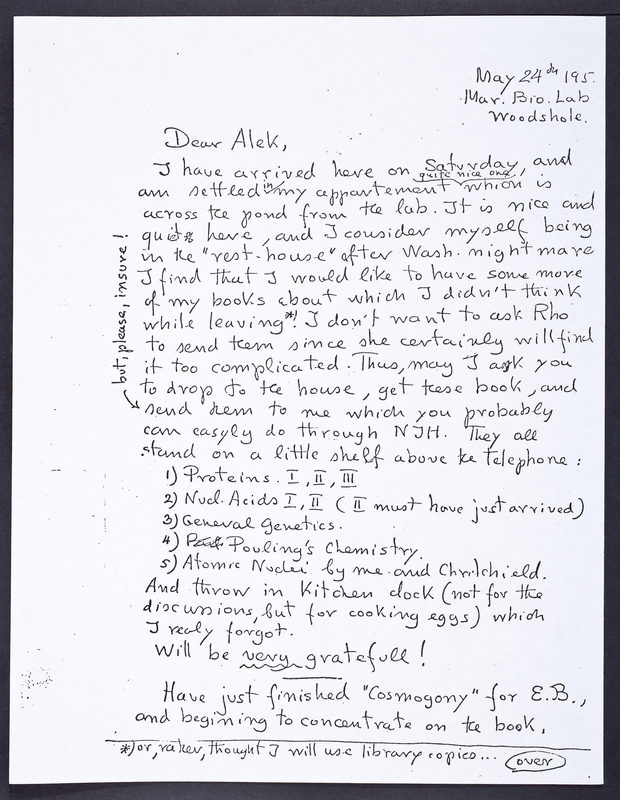 May 24th 195.
Mar. Bio. Lab
Woodshole.
Dear Alek,
I have arrived here on Saturday, and
quite nice one,
am settled in my appartement which is
across the pond from the lab. It is nice and
quiet here, and I consider myself being
in the "rest-house" after Wash. nightmare
I find that I would like to have some more
of my books about which I didn't think
while leaving*)! I don't want to ask Rho
to send them since she certainly will find
it too complicated. Thus, may I ask you
to drop to the house, get these book, and
send them to me which you probably
can easyly do through NIH. They all
stand on a little shelf above the telephone:
but, please, insure!
1) Proteins. I, II, III
2) Nucl. Acids I, II (II must have just arrived)
3) General Genetics.
4) Pouling's Chemistry.
5) Atomic Nuclei by me and Chritchield.
And throw in Kitchen clock (not for the
discussions, but for cooking eggs) which
I realy forgot.
Will be very gratefull!
Have just finished "Cosmogony" for E.B.,
and begining to concentrate on the book.
*) or, rather, thought I will use library copies...
over